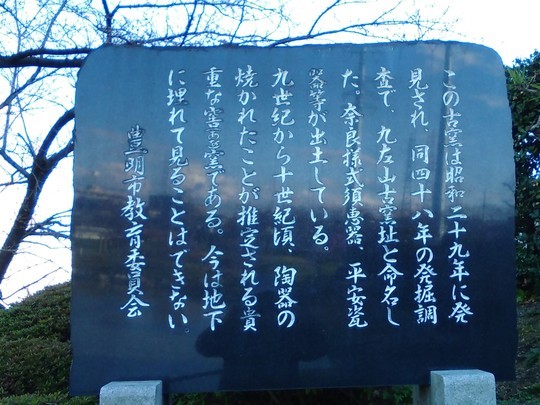 この古窯は昭和二十九年に発
見され、同四十八年の発掘調
査で、九左山古窯址と命名し
た。奈良様式須恵器、平安瓷
器等が出土している。
九世紀から十世紀頃、陶器の
焼かれたことが推定される貴
重な窖窯である。今は地下
に埋れて見ることはできない。
豊明市教育委員会